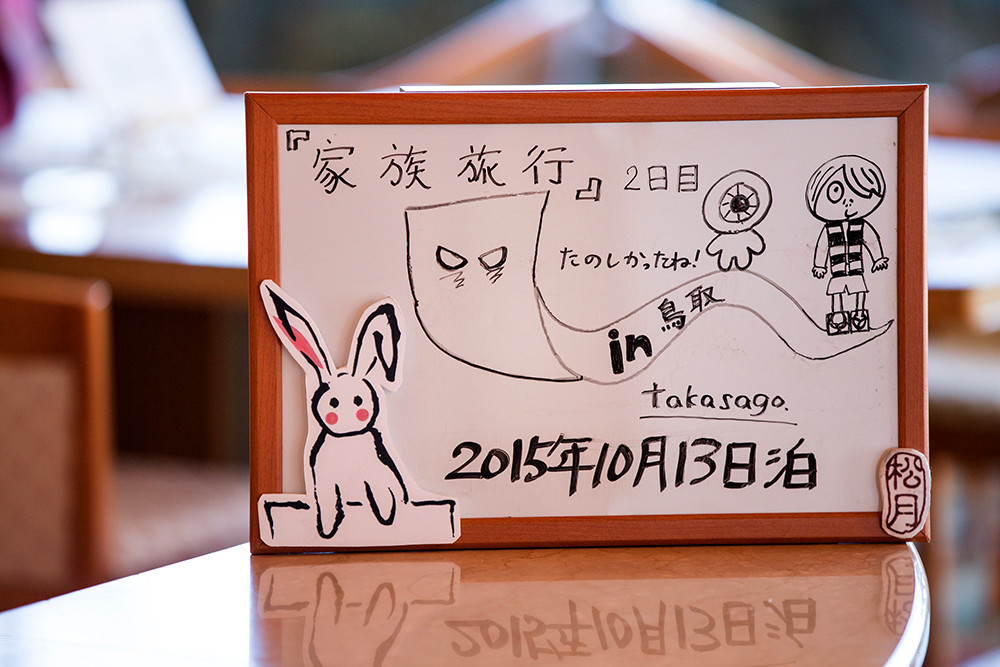 『家族旅行』 2日目
たのしかったね!
in 鳥取
takasago.
2015年10月13日泊
松月